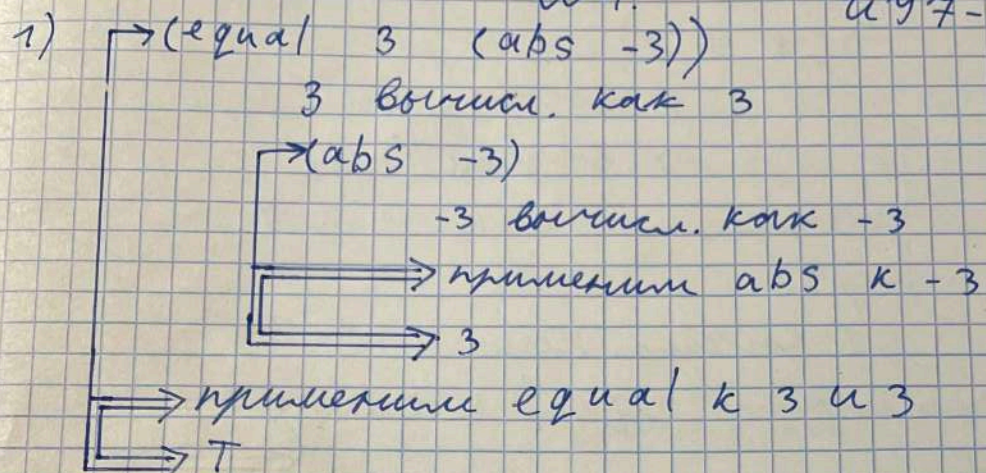 ИУ7-
1) (equal 3 (abs -3))
3 вычисл. как 3
(abs -3)
-3 вычисл. как -3
применим abs к -3
3
применим equal к 3 и 3
T